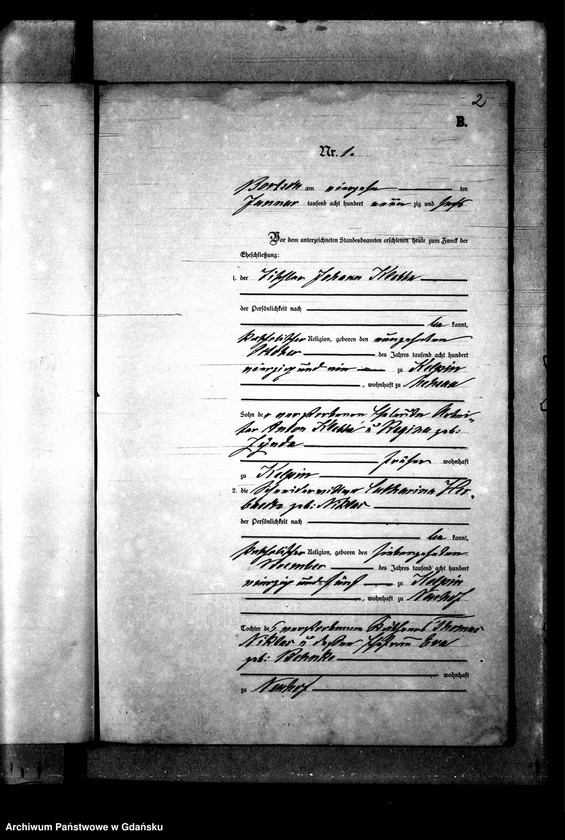 2
B.
Nr. 1.
am vierzehn ten
Januar tausend acht hundert neun zig und sechs
Vor dem unterzeichneten Standesbeamten erschienen heute zum Zweck der
Eheschließung:
1. der Tischler Johann
der Persönlichkeit nach
be kannt,
katholischer Religion, geboren den
October des Jahres tausend acht hundert
vierzig und ein zu Kelpin
, wohnhaft zu
Sohn der verstorbenen
Anton u Regina geb:
Zynda
früher wohnhaft
zu Kelpin
2. die Catharina
geb: Niklas
der Persönlichkeit nach
be kannt,
katholischer Religion, geboren den siebenzehnten
November des Jahres tausend acht hundert
vierzig und fünf zu Kelpin
, wohnhaft zu Neuhof
Tochter des verstorbenen Thomas
Niklas u dessen Ehefrau Eva
geb: Behnke
wohnhaft
zu Neuhof
Archiwum Państwowe w Gdańsku